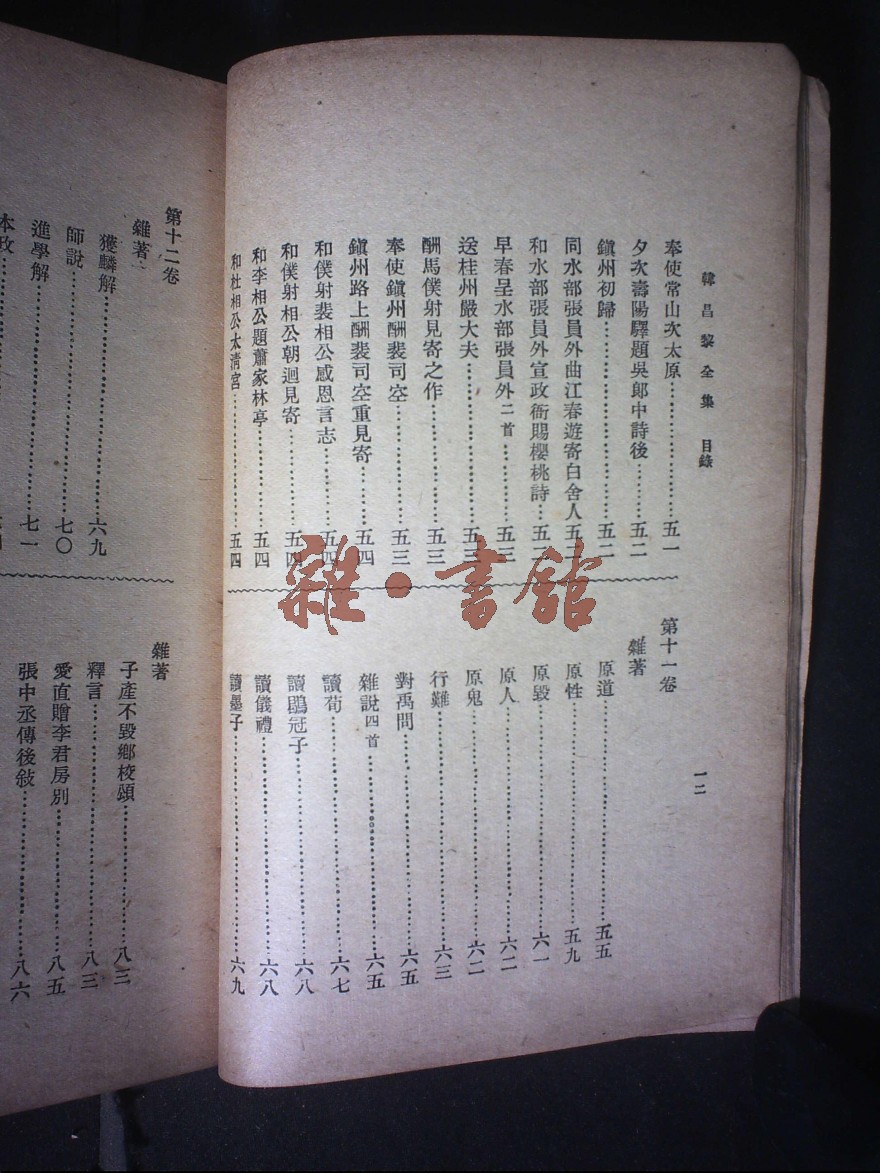 韓昌黎全集 目錄
一二
奉使常山次太原……五一
夕次壽陽驛題吳郞中詩後……五二
鎭州初歸……五二
同水部張員外曲江春遊寄白舍人
和水部張員外宣政衙賜櫻桃詩……五二
早春呈水部張員外二首……五三
送桂州嚴大夫……五三
酬馬僕射見寄之作……五三
奉使鎭州酬裴司空……五三
鎭州路上酬裴司空重見寄……五四
和僕射裴相公感恩言志……五四
和僕射相公朝迴見寄……五四
和李相公題蕭家林亭……五四
和杜相公太淸宮……五四
第十一卷
雜著
原道……五五
原性……五九
原毀……六一
原人……六二
原鬼……六二
行難……六三
對禹問……六五
雜說四首……六五
讀荀……六七
讀鶡冠子……六八
讀儀禮……六八
讀墨子……六九
第十二卷
雜著
獲麟解……六九
師說……七〇
進學解……七一
本政
雜著
子產不毀鄉校頌……八三
釋言……八三
愛直贈李君房別……八五
張中丞傳後敍……八六
雜·書館